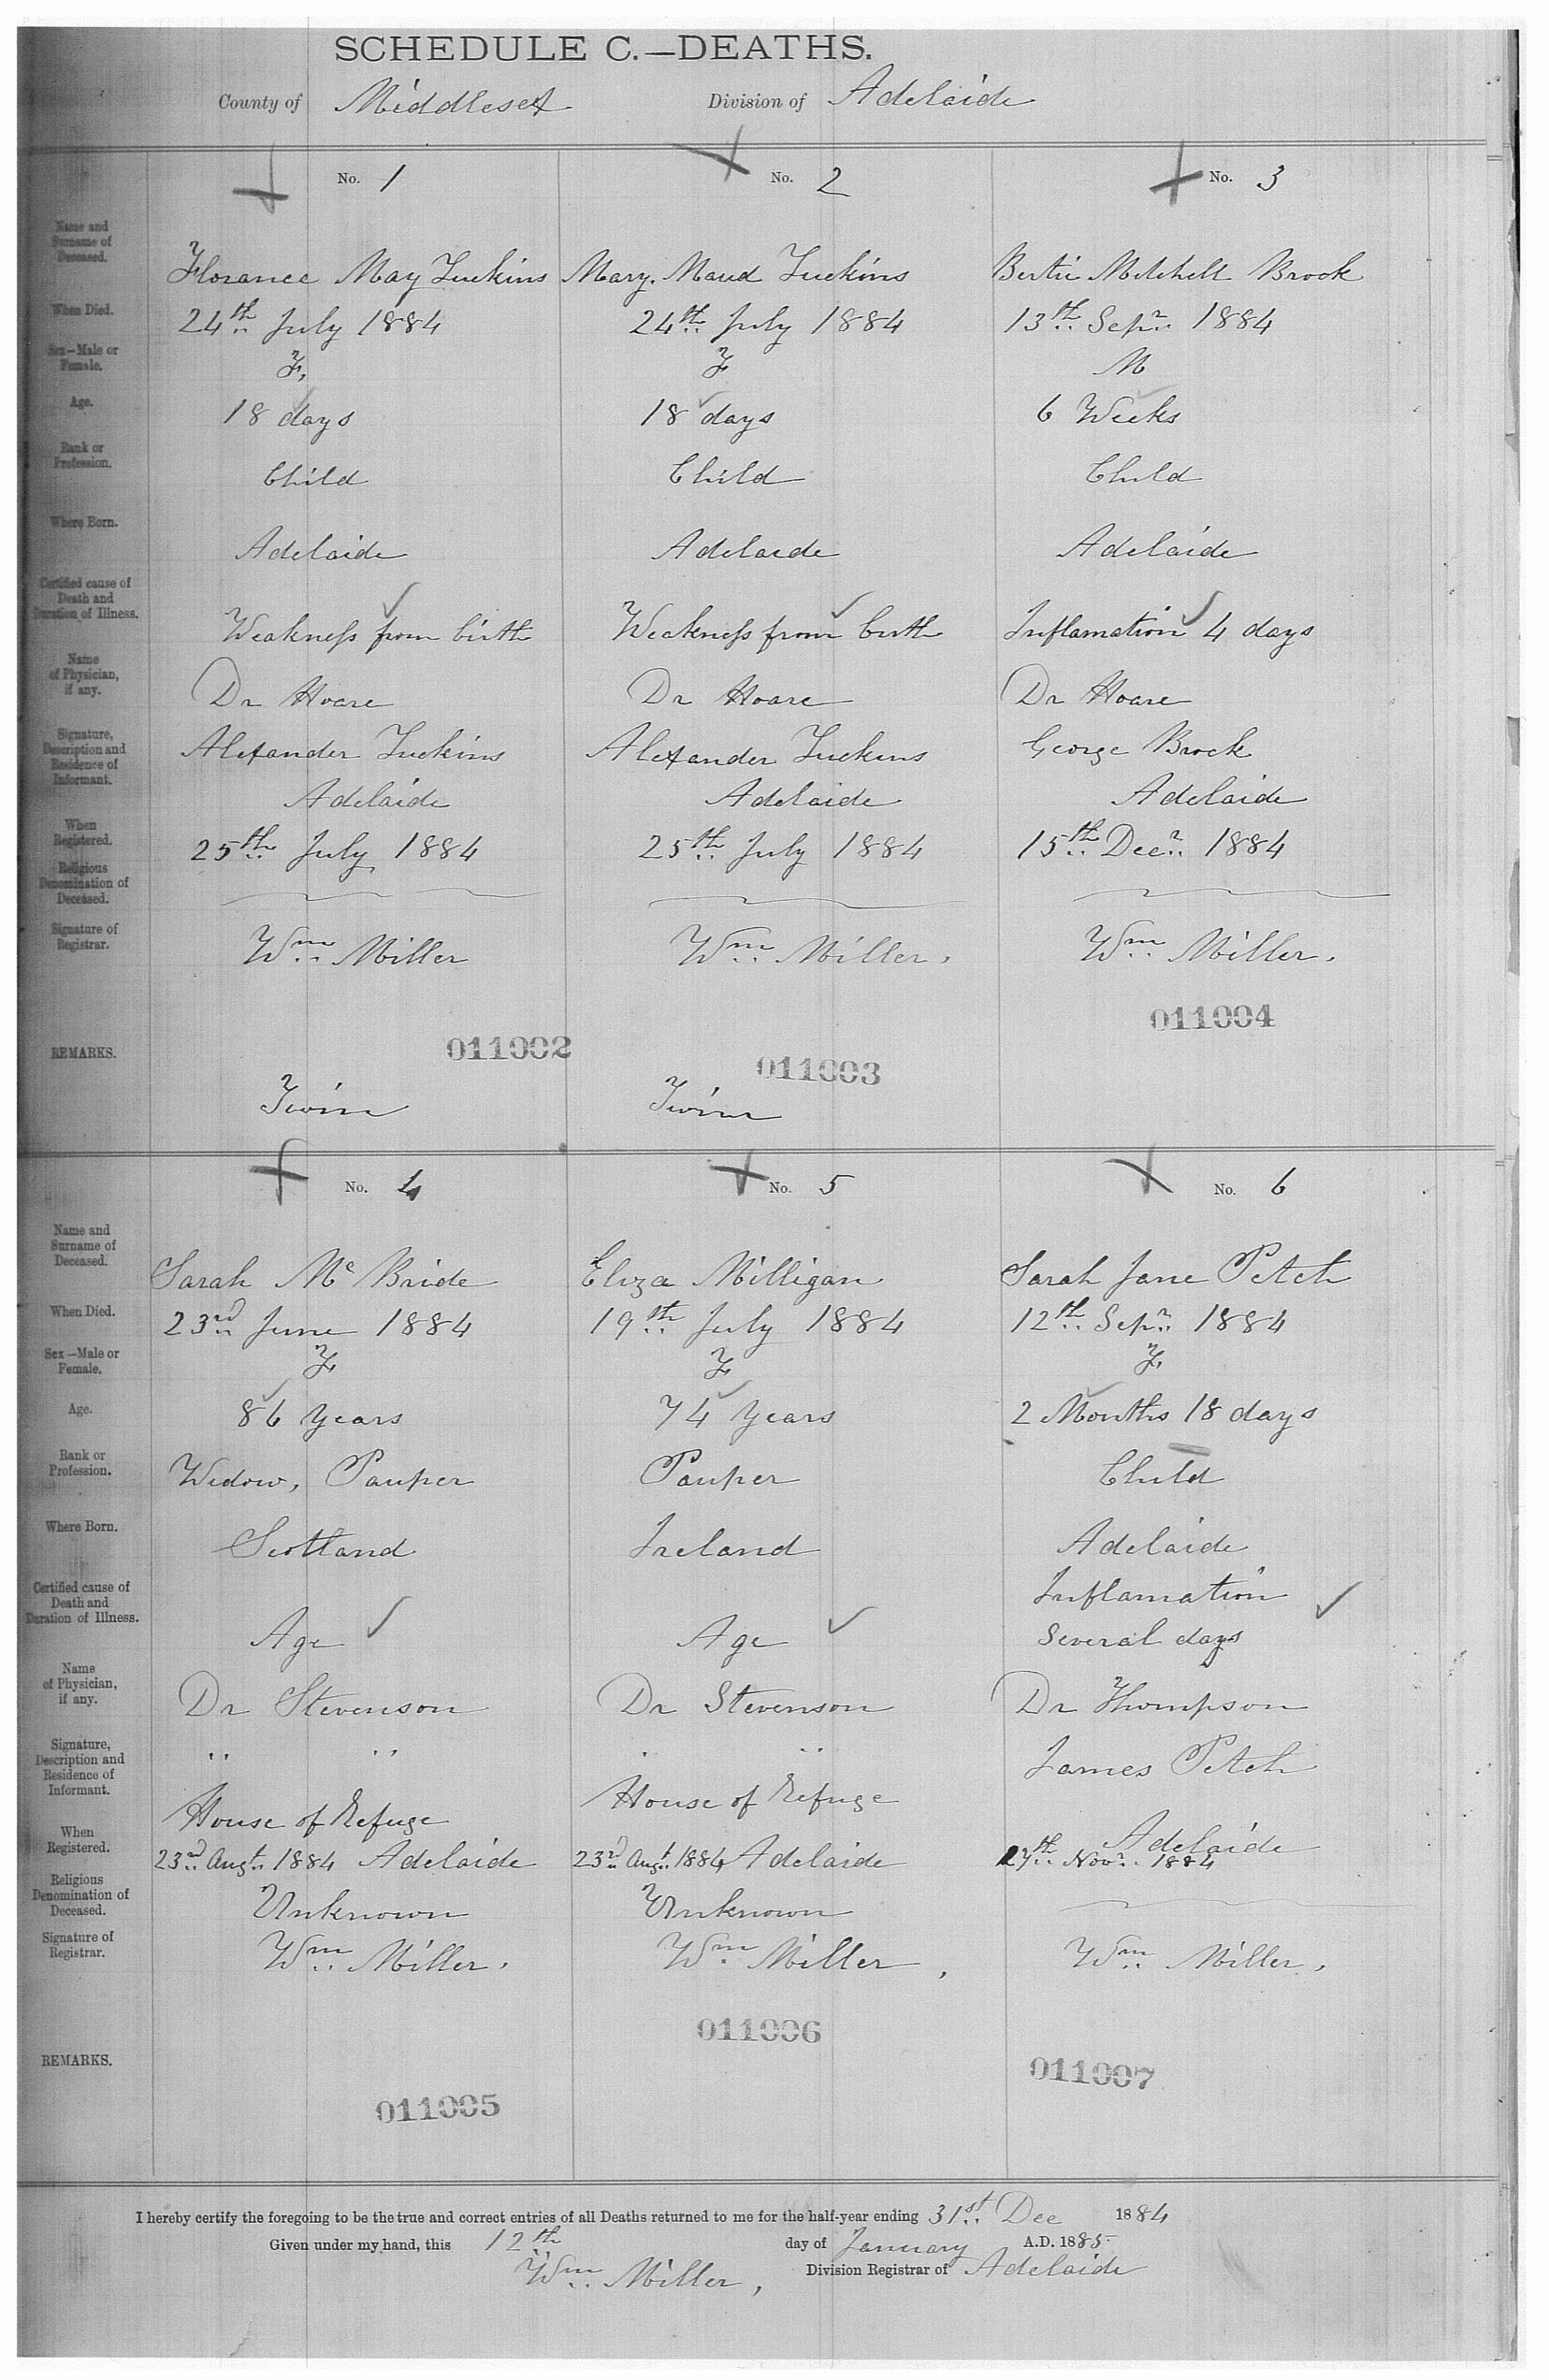 SCHEDULE C.—DEATHS.
County of Middlesex Division of Adelaide
No. 1 No. 2 No. 3
Name and Surname of Deceased. Florance May Luckins Mary. Maud Luckins Bertie Mitchell Brock
When Died. 24th July 1884 24th July 1884 13th Sepr 1884
Sex—Male or Female. F. F M
Age. 18 days 18 days 6 Weeks
Rank or Profession. Child Child Child
Where Born. Adelaide Adelaide Adelaide
Certified cause of Death and Duration of Illness. Weakness from birth Weakness from birth Inflamation 4 days
Name of Physician, if any. Dr Hoare Dr Hoare Dr Hoare
Signature, Description and Residence of Informant. Alexander Luckins Alexander Luckins George Brock
Adelaide Adelaide Adelaide
When Registered. 25th July 1884 25th July 1884 15th Decr 1884
Religious Denomination of Deceased.
Signature of Registrar. Wm Miller Wm Miller. Wm Miller.
REMARKS. 011002 011003 011004
Twin Twin
No. 4 No. 5 No. 6
Name and Surname of Deceased. Sarah Mc Bride Eliza Milligan Sarah Jane Petch
When Died. 23rd June 1884 19th July 1884 12th Sepr 1884
Sex—Male or Female. F. F. F.
Age. 86 years 74 years 2 Months 18 days
Rank or Profession. Widow, Pauper Pauper Child
Where Born. Scotland Ireland Adelaide
Certified cause of Death and Duration of Illness. Age Age Inflamation
Several days
Name of Physician, if any. Dr Stevenson Dr Stevenson Dr Thompson
Signature, Description and Residence of Informant. " " " " James Petch
House of Refuge House of Refuge Adelaide
When Registered. 23rd Augt 1884 Adelaide 23rd Augt 1884 Adelaide 27th Novr 1884
Religious Denomination of Deceased. Unknown Unknown
Signature of Registrar. Wm Miller. Wm Miller. Wm Miller.
REMARKS. 011005 011006 011007
I hereby certify the foregoing to be the true and correct entries of all Deaths returned to me for the half-year ending 31st Dec 1884
Given under my hand, this 12th day of January A.D. 1885.
Wm Miller, Division Registrar of Adelaide